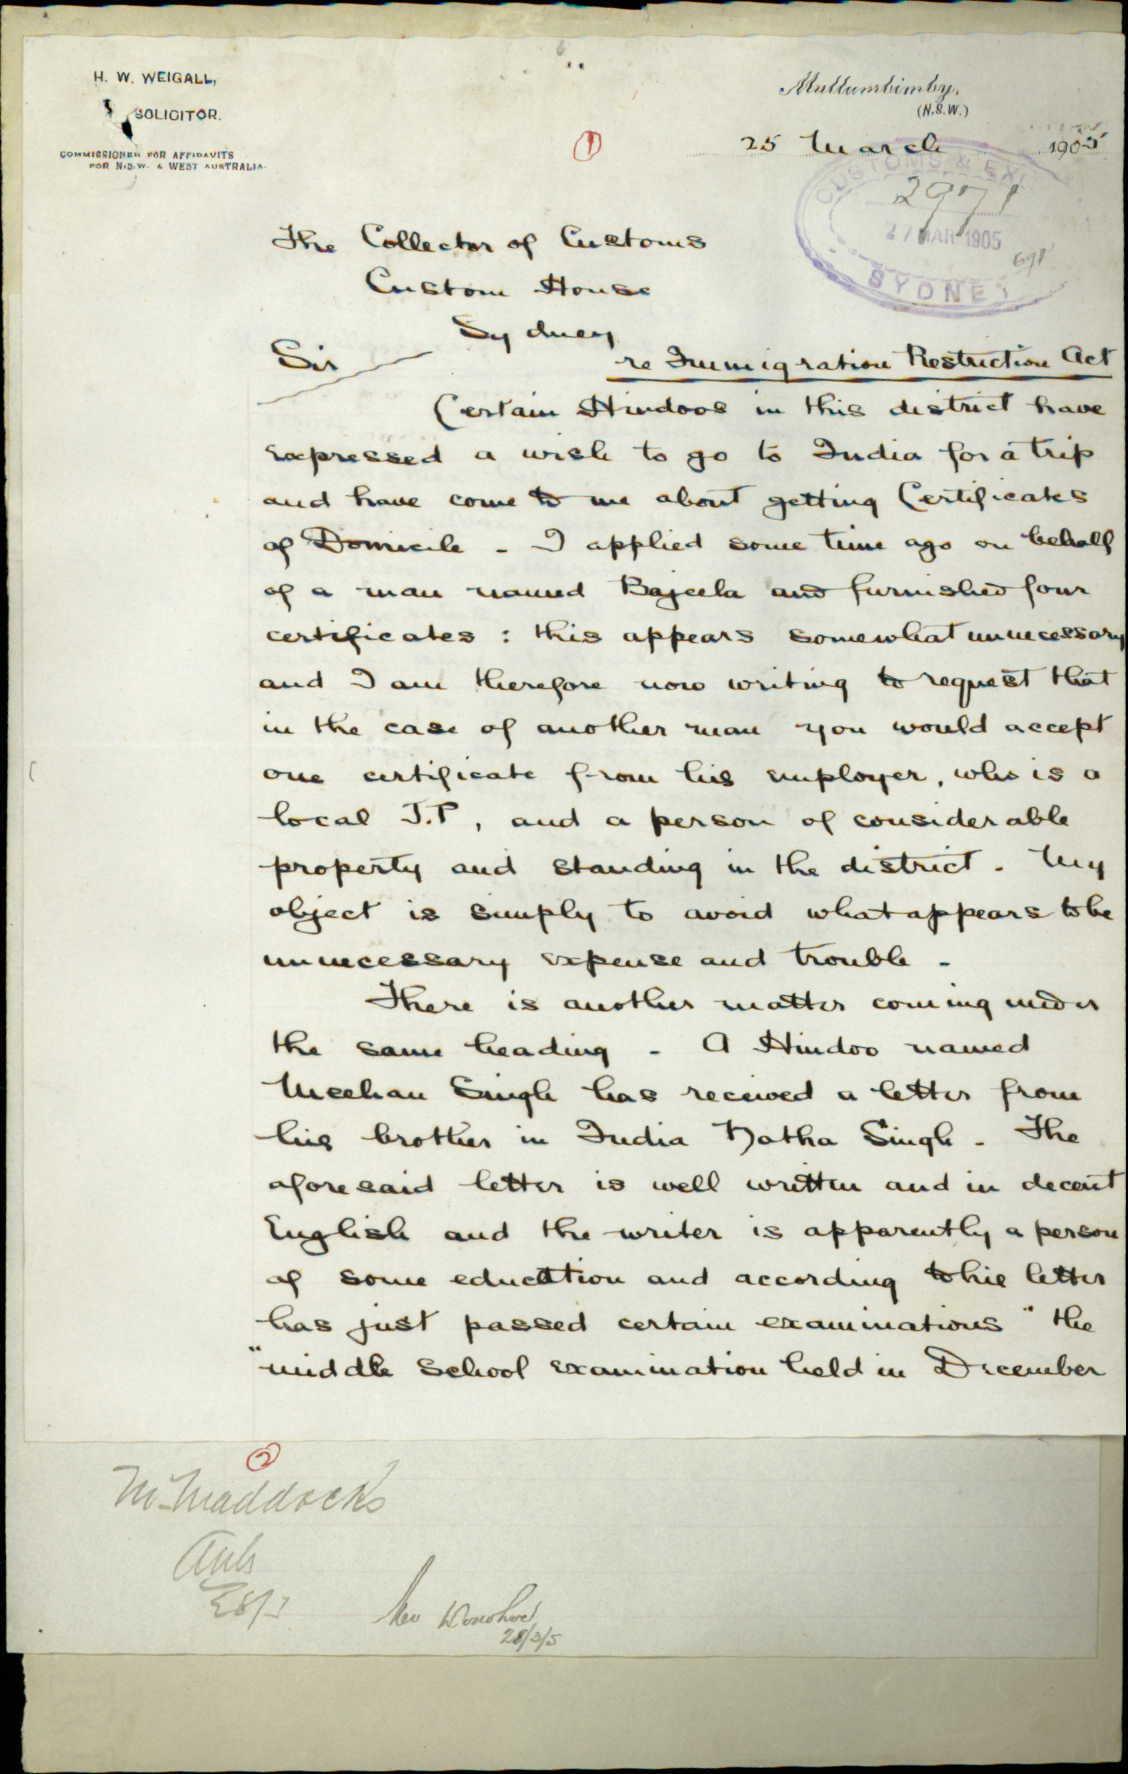 H. W. WEIGALL,
SOLICITOR.
COMMISSIONER FOR AFFIDAVITS
FOR N.S.W. & WEST AUSTRALIA.
Mullumbimby,
(N.S.W.)
1
25 March 1905
CUSTOMS & EX
2971
27 MAR 1905
SYDNEY
The Collector of Customs
Custom House
Sydney
Sir
re Immigration Restriction Act
Certain Hindoos in this district have
expressed a wish to go to India for a trip
and have come to me about getting Certificates
of Domicile - I applied some time ago on behalf
of a man named Bajeela and furnished four
certificates : this appears somewhat unnecessary
and I am therefore now writing to request that
in the case of another man you would accept
one certificate from his employer, who is a
local J.P, and a person of considerable
property and standing in the district - My
object is simply to avoid what appears to be
unnecessary expense and trouble -
There is another matter coming under
the same heading - A Hindoo named
Meehan Singh has received a letter from
his brother in India Natha Singh - The
aforesaid letter is well written and in decent
English and the writer is apparently a person
of some education and according to his letter
has just passed certain examinations "the
"middle School examination held in December
2
Mr Maddocks
28/3
Donohoe
28/3/5